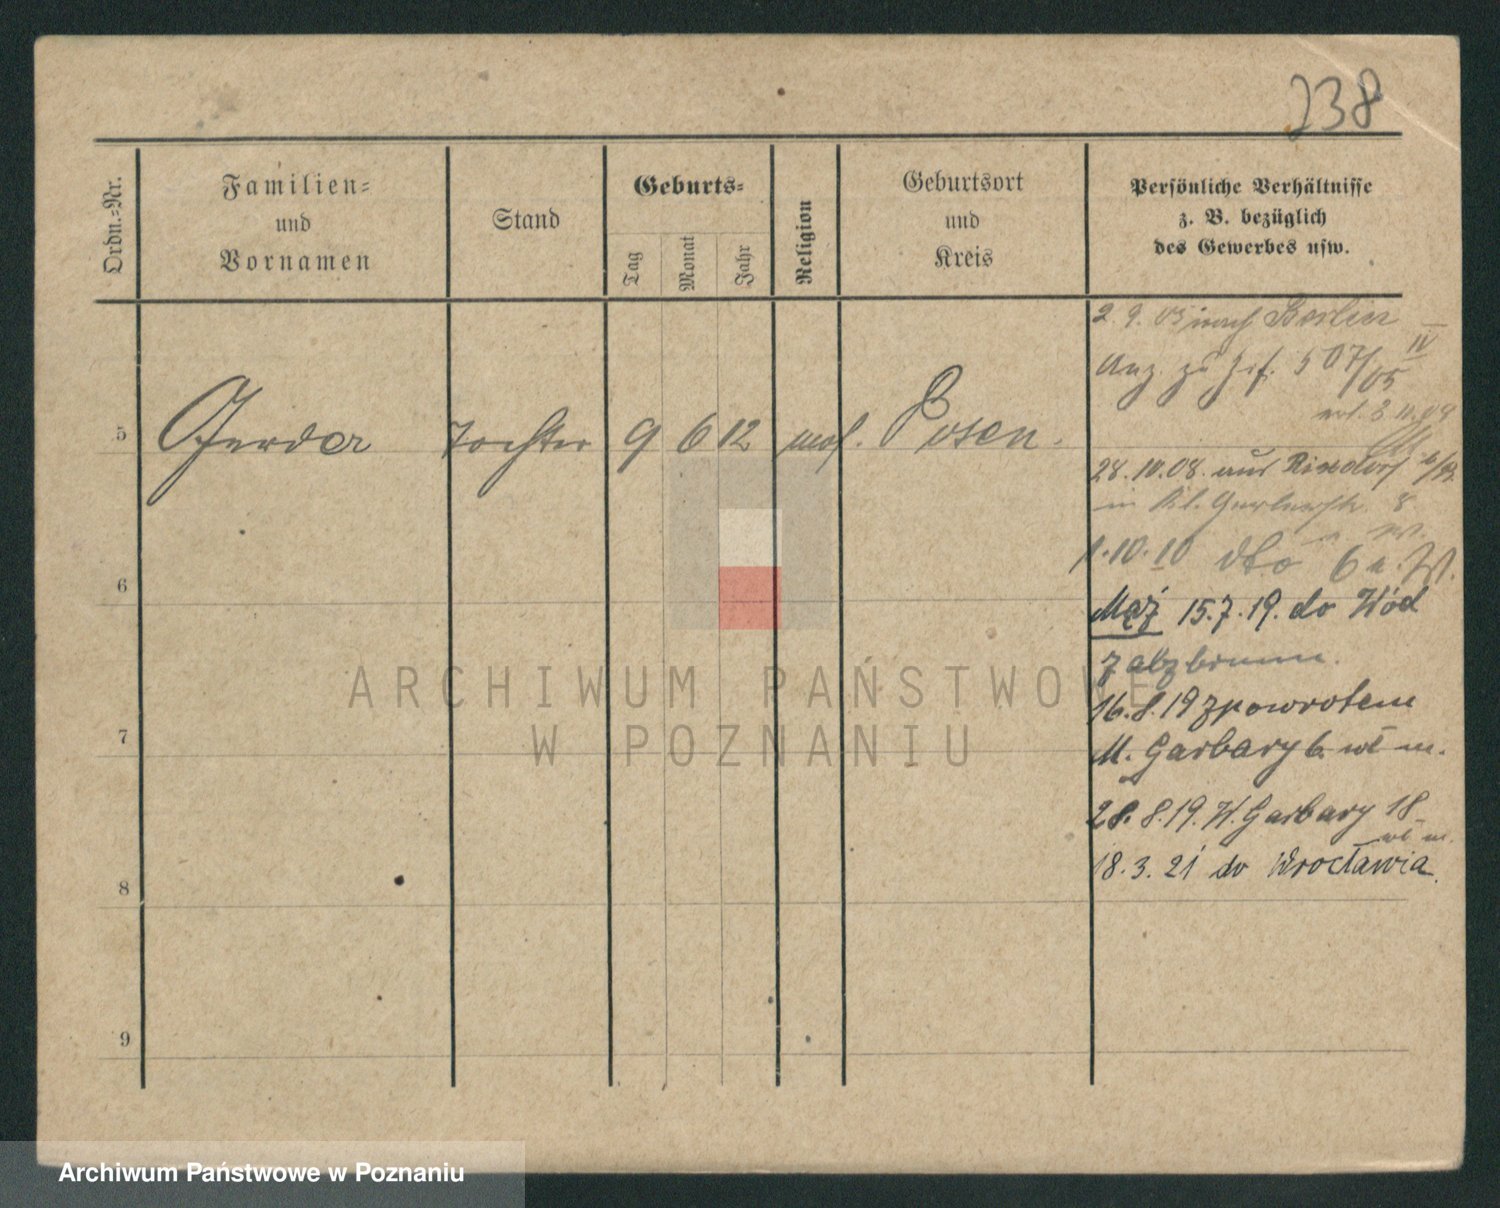 238
Ordn.-Nr.
Familien-
und
Vornamen
Stand
Geburts-
Tag
Monat
Jahr
Religion
Geburtsort
und
Kreis
Persönliche Verhältnisse
z. B. bezüglich
des Gewerbes usw.
2. 9. 03 nach Berlin
Anz. zu 507/05 IV
5 Gerda Tochter 9 6 12 mos. Posen.
28.10.08. aus Rixdorf
in Kl. Gerberstr. 8
1.10.10 dto 6 a. W.
6
Mąż 15.7.19. do Wód
7
16.8.19 zpowrotem
M. Garbary 6. wł m.
28.8.19. W. Garbary 18
wł m.
18.3.21 do Wrocławia.
8
9
ARCHIWUM PAŃSTWOWE
W POZNANIU
Archiwum Państwowe w Poznaniu